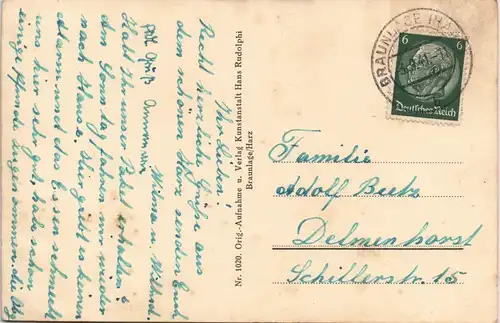 Ihr Lieben!
Recht herzliche Grüße aus
dem schönen Harz senden Euch
Wilma und Willind.
Habt Ihr unser Paket erhalten?
den Sonntag fahren wir wieder
nach Hause. Sie gibt es keinen
Alarm und das Essen schmeckt
uns hier sehr gut, habe schon
einige Pfunde zugenommen, die
Nr. 1020. Orig.-Aufnahme u. Verlag Kunstanstalt Hans Rudolphi
Braunlage/Harz
BRAUNLAGE (HARZ)
6 6
Deutsches Reich
Familie
Adolf Butz
Delmenhorst
Schillerstr. 15